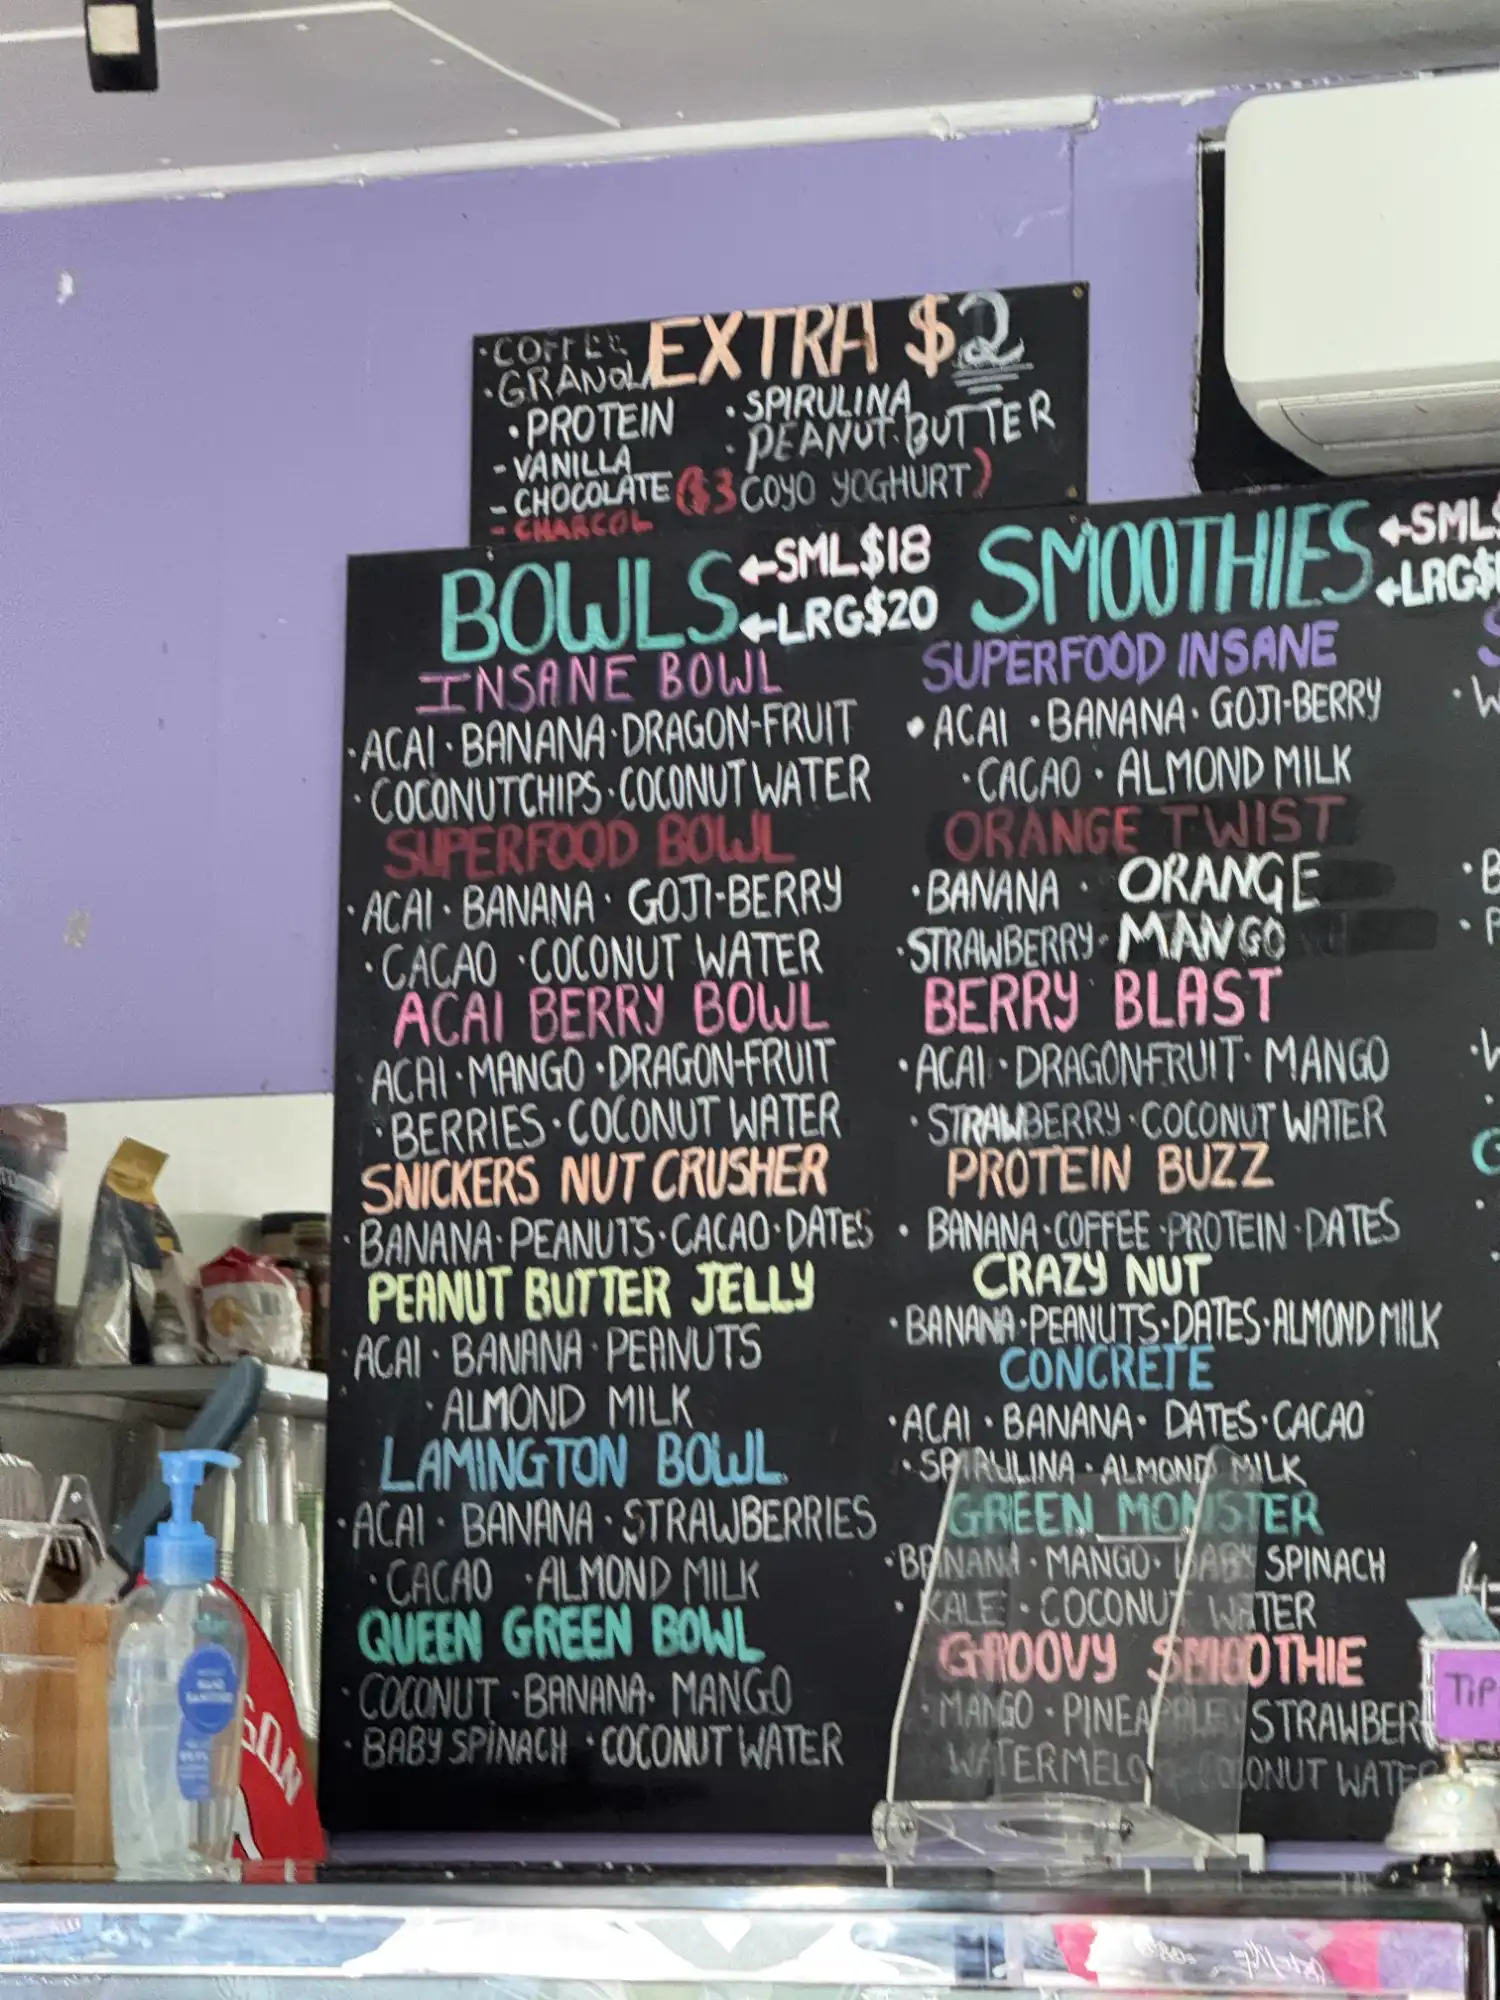 EXTRA $2
· COFFEE
· GRANOLA
· PROTEIN
- VANILLA
- CHOCOLATE
- CHARCOL
· SPIRULINA
· PEANUT BUTTER
($3 COYO YOGHURT)
BOWLS ←SML$18
←LRG$20
INSANE BOWL
· ACAI · BANANA · DRAGON-FRUIT
· COCONUTCHIPS · COCONUT WATER
SUPERFOOD BOWL
· ACAI · BANANA · GOJI-BERRY
· CACAO · COCONUT WATER
ACAI BERRY BOWL
ACAI · MANGO · DRAGON-FRUIT
· BERRIES · COCONUT WATER
SNICKERS NUT CRUSHER
· BANANA · PEANUTS · CACAO · DATES
PEANUT BUTTER JELLY
· ACAI · BANANA · PEANUTS
· ALMOND MILK
LAMINGTON BOWL
· ACAI · BANANA · STRAWBERRIES
· CACAO · ALMOND MILK
QUEEN GREEN BOWL
· COCONUT · BANANA · MANGO
· BABY SPINACH · COCONUT WATER
SMOOTHIES ←SML$
←LRG$
SUPERFOOD INSANE
· ACAI · BANANA · GOJI-BERRY
· CACAO · ALMOND MILK
ORANGE TWIST
· BANANA · ORANGE
· STRAWBERRY · MANGO
BERRY BLAST
· ACAI · DRAGONFRUIT · MANGO
· STRAWBERRY · COCONUT WATER
PROTEIN BUZZ
· BANANA · COFFEE · PROTEIN · DATES
CRAZY NUT
· BANANA · PEANUTS · DATES · ALMOND MILK
CONCRETE
· ACAI · BANANA · DATES · CACAO
· SPIRULINA · ALMOND MILK
GREEN MONSTER
· BANANA · MANGO · BABY SPINACH
· KALE · COCONUT WATER
GROOVY SMOOTHIE
· MANGO · PINEAPPLE · STRAWBER
WATERMELO COCONUT WATE
TIP
HAND
SANITISER